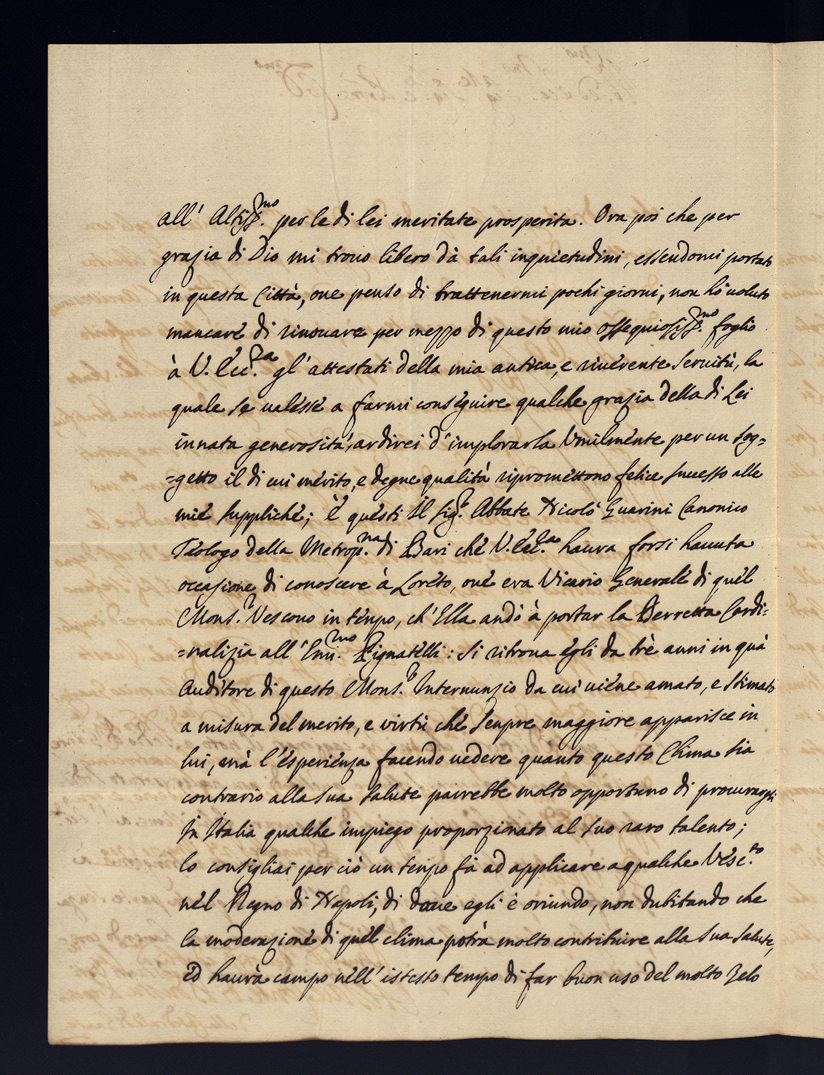 all' Altiss.mo per le di lei meritate prosperita. Ora poi che per
grazia di Dio mi trouo libero dà tali inquietudini, essendomi portato
in questa Città, oue penso di trattenermi pochi giorni, non hò uoluto
mancare di rinouare per mezzo di questo mio ossequiosiss.mo foglio
à V. Ecc.za gl' attestati della mia antica, e riuerente seruitù, la
quale se ualesse a farmi conseguire qualche grazia della di Lei
innata generosità, ardirei d' implorarla Vmilmente per un sog=
=getto il di cui merito, e degne qualità ripromettono felice successo alle
mie suppliche; è questi Il sig.r Abbate Nicolò Guarini Canonico
Teologo della Metrop.na di Bari che V. Ecc.za haura forsi hauuta
occasione di conoscere à Loreto, oue era Vicario Generale di quel
Mons.r Vescouo in tempo, ch' Ella andò à portar la Berretta Cardi=
=nalizia all' Emi.mo Pignatelli: si ritroua egli da trè anni in quà
Auditore di questo Mons.r Internunzio da cui uiene amato, e stimato
a misura del merito, e virtù che sempre maggiore apparisce in
lui, mà l' esperienza facendo uedere quanto questo Clima sia
contrario alla sua salute parrebbe molto opportuno di procurargli
In Italia qualche impiego proporzionato al suo raro talento;
lo consigliai per ciò un tempo fà ad applicare a qualche Vesc.to
nel Regno di Napoli, di doue egli è oriundo, non dubitando che
la moderazione di quel clima potrà molto contribuire alla sua salute,
ed haurà campo nell' istesso tempo di far buon uso del molto zelo